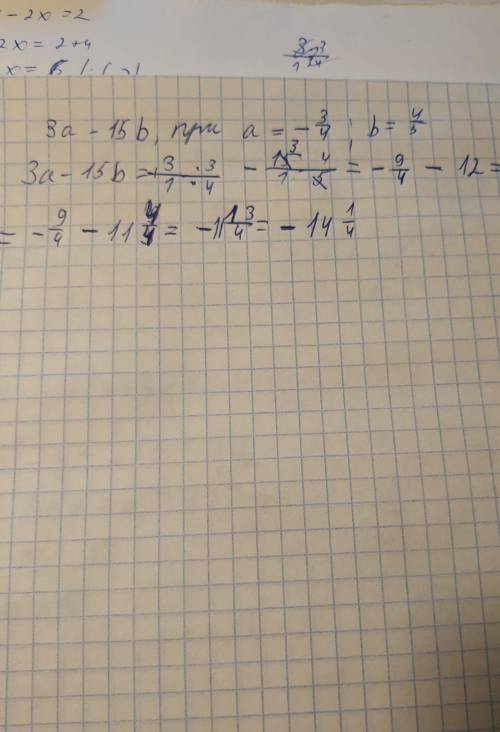 - 2x = 2
2x = 2+4
x = 6
3 · 3 / 1 · 4
3a - 15b, при a = -3/4 ; b = 4/5
3a - 15b = -3 · 3 / 1 · 4 - 15 3 · 4 / 1 · 5 = -9/4 - 12 =
= -9/4 - 11 4/4 = -11 13/4 = -14 1/4